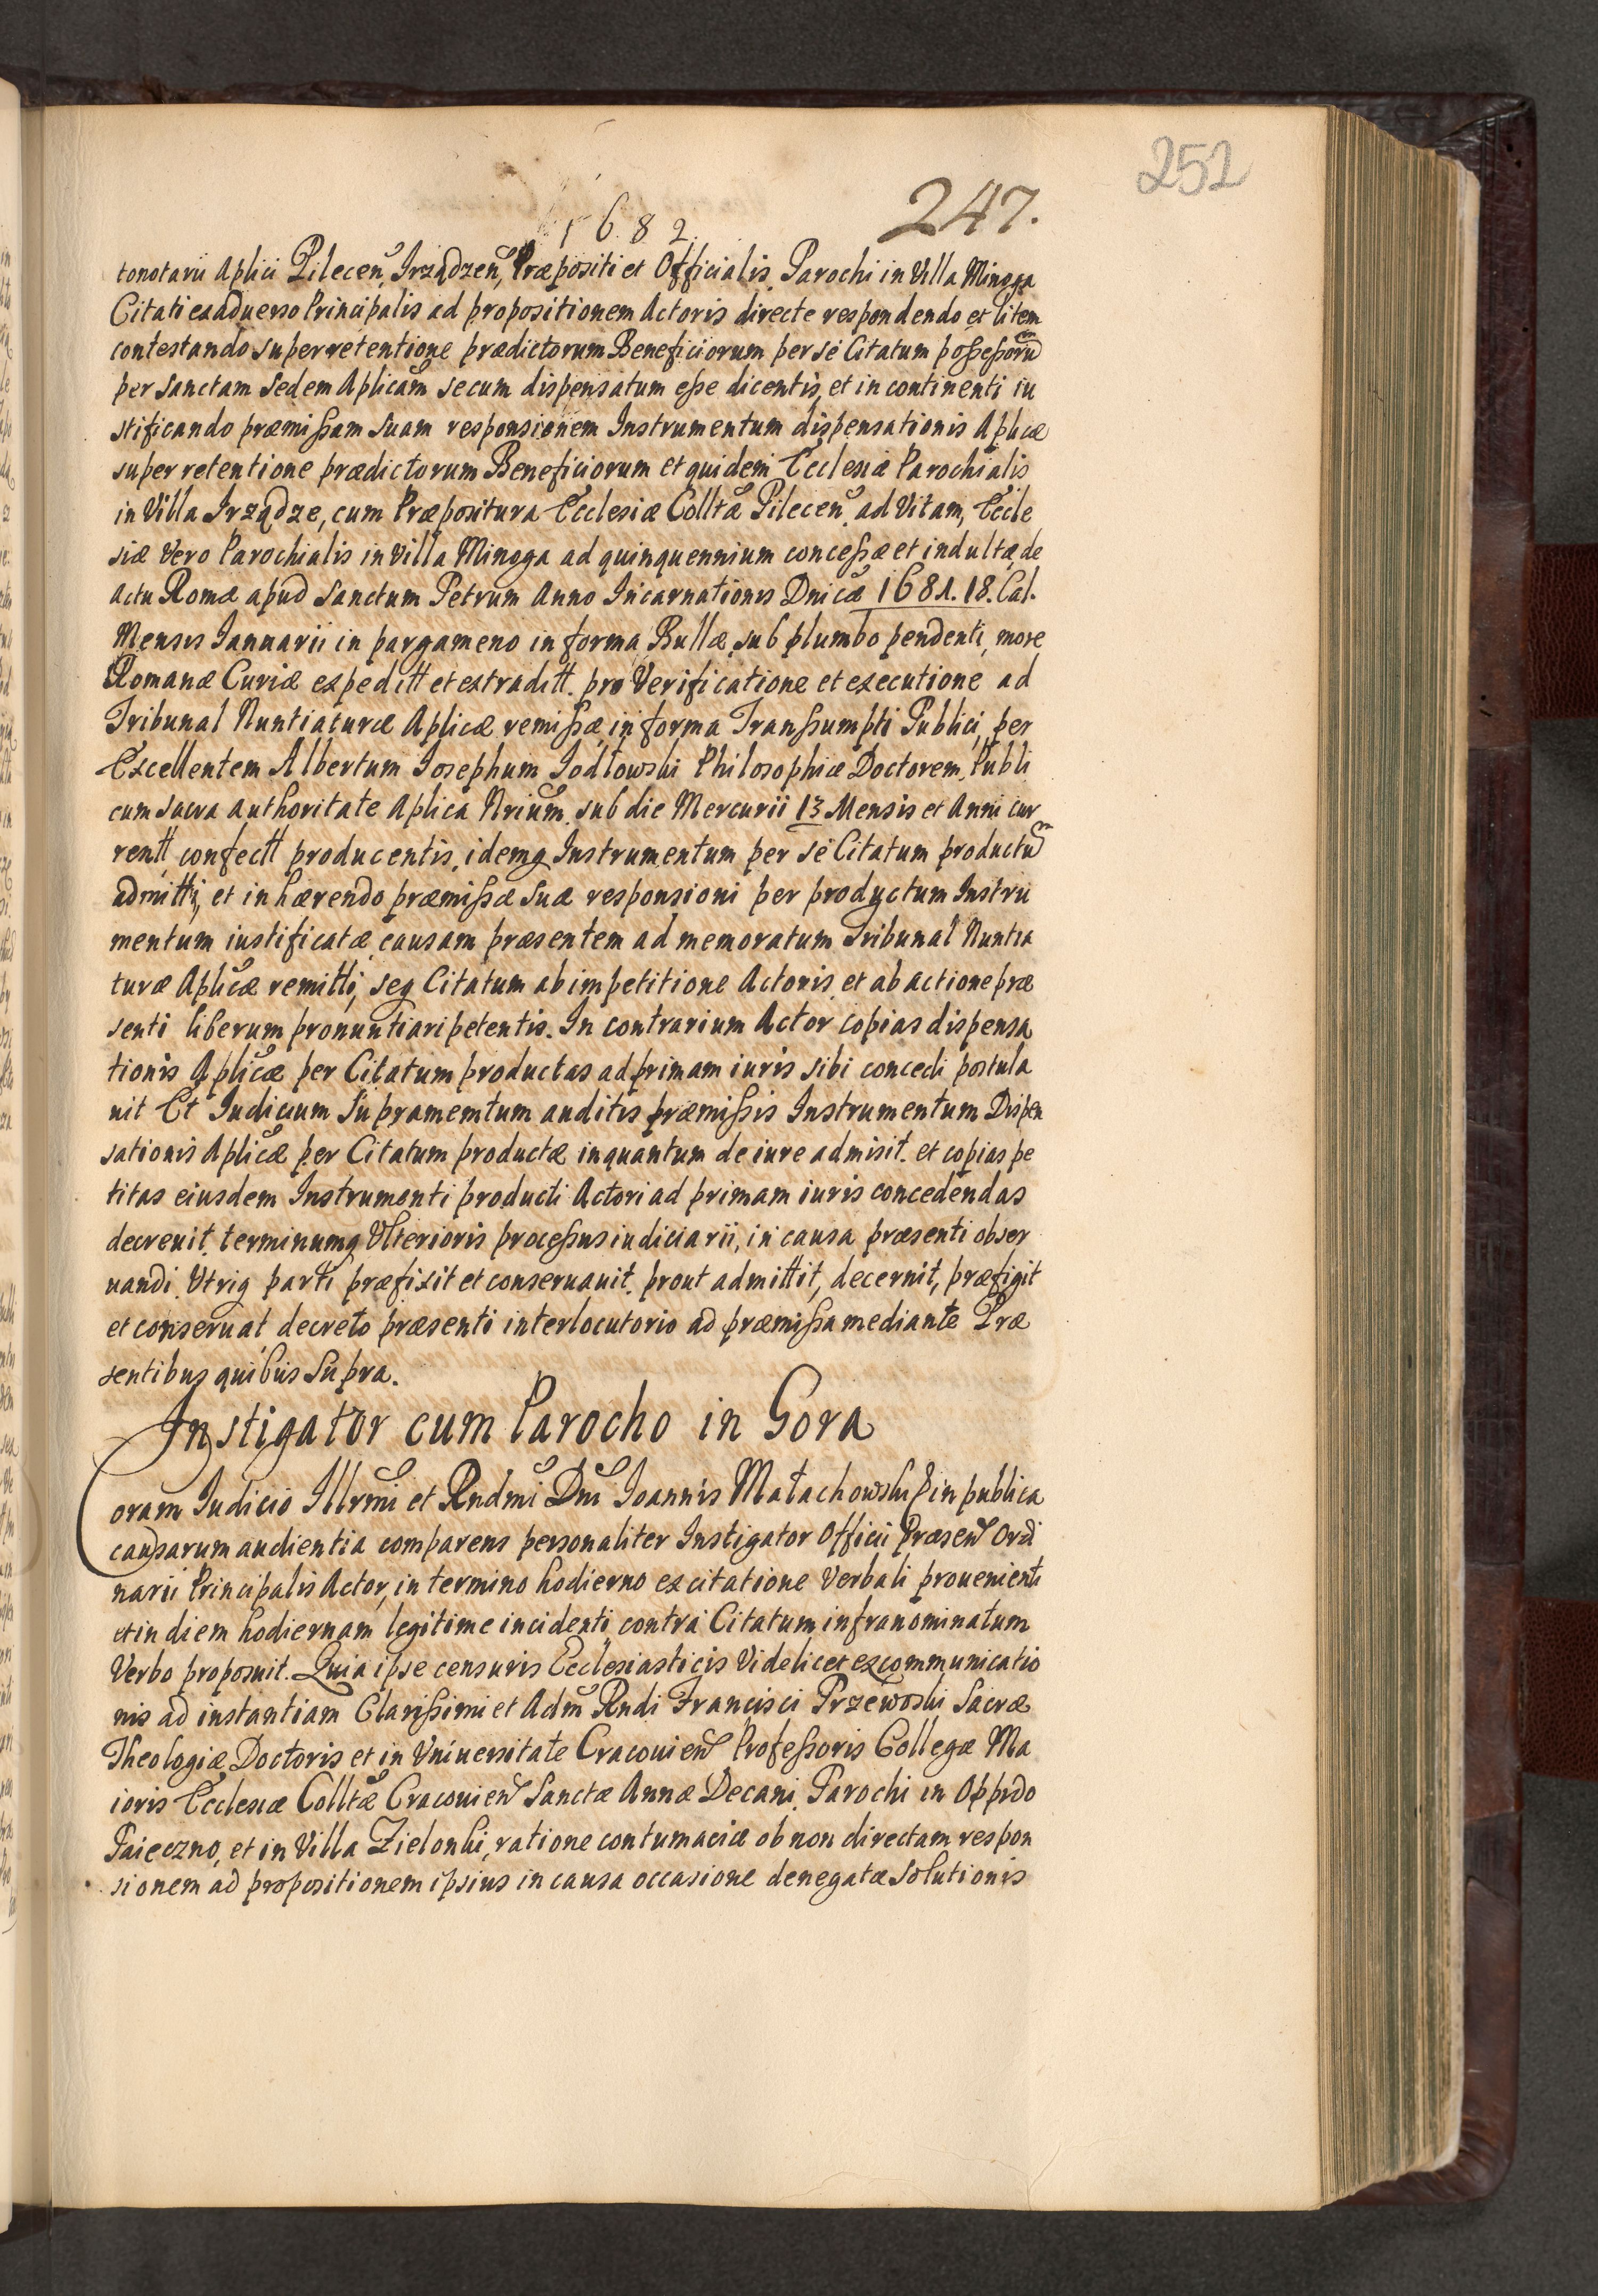 252
247.
1682.
tonotarii Aplici Pilecen, Irządzen, Præpositi et Officialis, Parochi in Villa Minoga
Citati exaduerso Principalis ad propositionem Actoris directe respondendo et litem
contestando super retentione prædictorum Beneficiorum per se Citatum poßeßorũ
per Sanctam Sedem Aplicam secum dispensatum eße dicentis, et in continenti iu
stificando præmißam Suam responsionem Instrumentum dispensationis Aplicæ
super retentione prædictorum Beneficiorum et quidem Ecclesiæ Parochialis
in Villa Irządze, cum Præpositura Ecclesiæ Colltæ Pilecen, ad Vitam, Eccle
siæ Vero Parochialis in Villa Minoga ad quinquennium conceßæ et indultæ, de
actu Romæ apud Sanctum Petrum Anno Incarnationis Dnicæ 1681. 18. Cal.
Mensis Ianuarii in pargameno in forma Bullæ sub plumbo pendenti, more
Romanæ Curiæ expeditt et extraditt. pro Verificatione et executione ad
Tribunal Nuntiaturæ Aplicæ remißæ, in forma Transsumpti Publici per
Excellentem Albertum Iosephum Jodłowski Philosophiæ Doctorem, Publi
cum Sacra Authoritate Aplica Nrium, sub die Mercurii 13 Mensis et Anni cur
rentt confectt producentis, idemq Instrumentum per se Citatum productũ
admitti, et in hærendo præmißæ Suæ responsioni per productum Instru
mentum iustificatæ, causam præsentem ad memoratum Tribunal Nuntia
turæ Aplicæ remitti, seq Citatum ab impetitione Actoris, et ab actione præ
senti liberum pronuntiari petentis. In contrarium Actor copias dispensa
tionis Aplicæ per Citatum productas ad primam iuris sibi concedi postula
uit Et Iudicium Supramemtum auditis præmißis Instrumentum Dispen
sationis Aplicæ per Citatum productæ inquantum de iure admisit. et copias pe
titas eiusdem Instrumenti producti Actori ad primam iuris concedendas
decreuit. terminumq Vlterioris proceßus iudiciarii, in causa præsenti obser
uandi, Vtriq parti præfixit et conseruauit. prout admittit, decernit, præfigit
et conseruat decreto præsenti interlocutorio ad præmißa mediante Præ
sentibus quibus Supra.
Instigator cum Parocho in Gora
Coram Iudicio Illrmi et Rndmi Dni Ioannis Małachowski in publica
causarum audientia comparens personaliter Instigator Officii Præsen Ordi
narii Principalis Actor, in termino hodierno ex citatione Verbali prouenienti
et in diem hodiernam legitime incidenti contra Citatum infranominatum
Verbo proposuit. Quia ipse censuris Ecclesiasticis Videlicet excommunicatio
nis ad instantiam Clarißimi et Adm Rndi Francisci Przewoski Sacræ
Theologiæ Doctoris et in Vniuersitate Cracouien Profeßoris Collegæ Ma
ioris Ecclesiæ Colltæ Cracouien Sanctæ Annæ Decani, Parochi in Oppido
Paieczno, et in Villa Zielonki, ratione contumaciæ ob non directam respon
sionem ad propositionem ipsius in causa occasione denegatæ Solutionis